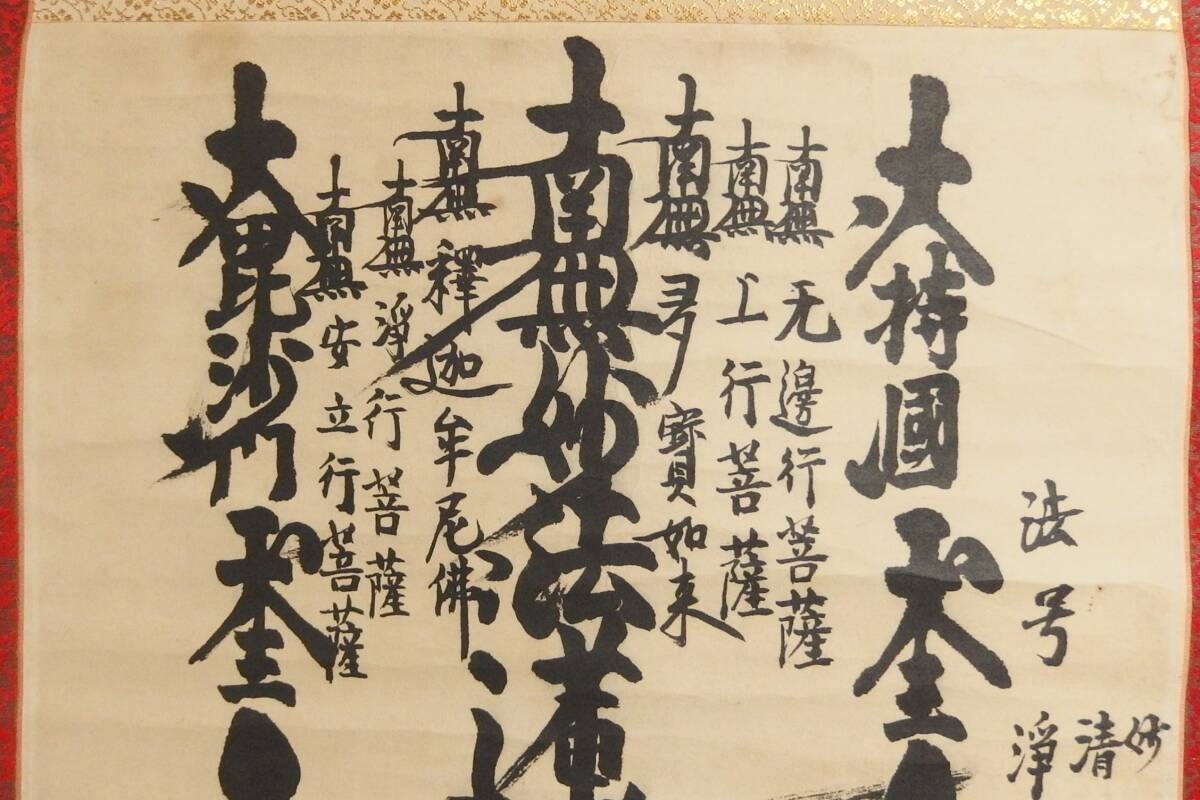 法号
妙
清
淨
大持國天王
南無无邊行菩薩
南無上行菩薩
南無多寶如来
南無妙法蓮
南無釋迦牟尼佛
南無淨行菩薩
南無安立行菩薩
大毘沙門天王